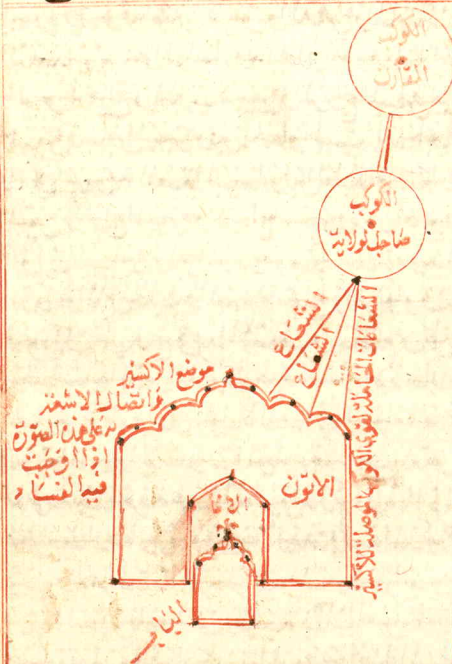 الكوكب
المقارن
الكوكب
صاحب الولاية
الشعاع
الشعاع
الشعاعات الحاملة لقوى الكوكب الموصلة للاكسير
موضع الاكسير
واتصال الاشعة
على هذه الصورة
اذا
فيه الفساد
الاتون